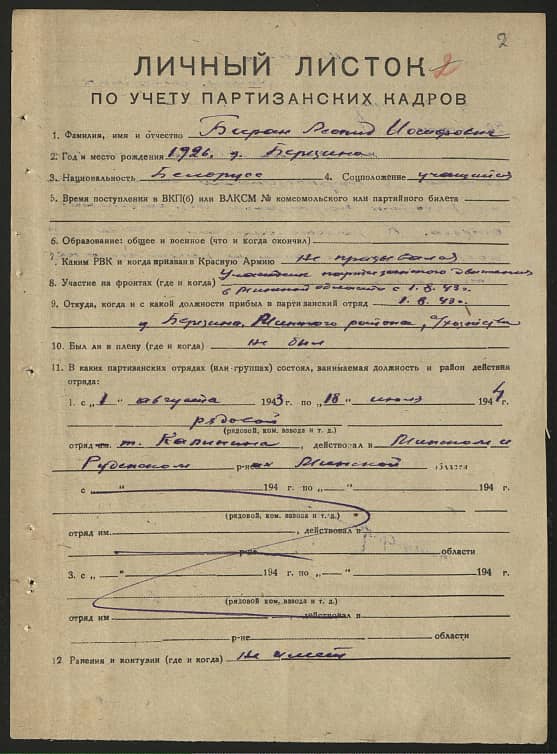 2
ЛИЧНЫЙ ЛИСТОК 2
ПО УЧЕТУ ПАРТИЗАНСКИХ КАДРОВ
1. Фамилия, имя и отчество Биран Леонид Иосифович
2. Год и место рождения 1926, д. Березина
3. Национальность Белорусс 4. Соцположение учащийся
5. Время поступления в ВКП(б) или ВЛКСМ № комсомольского или партийного билета
6. Образование: общее и военное (что и когда окончил)
7. Каким РВК и когда призван в Красную Армию Не призывался
8. Участие на фронтах (где и когда) Участник партизанского движения
в Минской области с 1.8.43г.
9. Откуда, когда и с какой должности прибыл в партизанский отряд 1.8.43г.
д. Березина, Минского района,
10. Был ли в плену (где и когда) Не был
11. В каких партизанских отрядах (или группах) состоял, занимаемая должность и район действия
отряда:
1. с „1 " августа 1943 г. по „18 " июля 1944
рядовой
(рядовой, ком. взвода и т. д.)
отряд им. т. Калинина, действовал в Минском и
Руденском р-нах Минской области
с „ " 194 г. по „ " 194 г.
(рядовой, ком. взвода и т. д.)
отряд им. , действовал в
р-не области
3. с „ " 194 г. по „ " 194 г.
(рядовой, ком. взвода и т. д.)
отряд им действовал в
р-не области
12. Ранения и контузии (где и когда) Не имеет